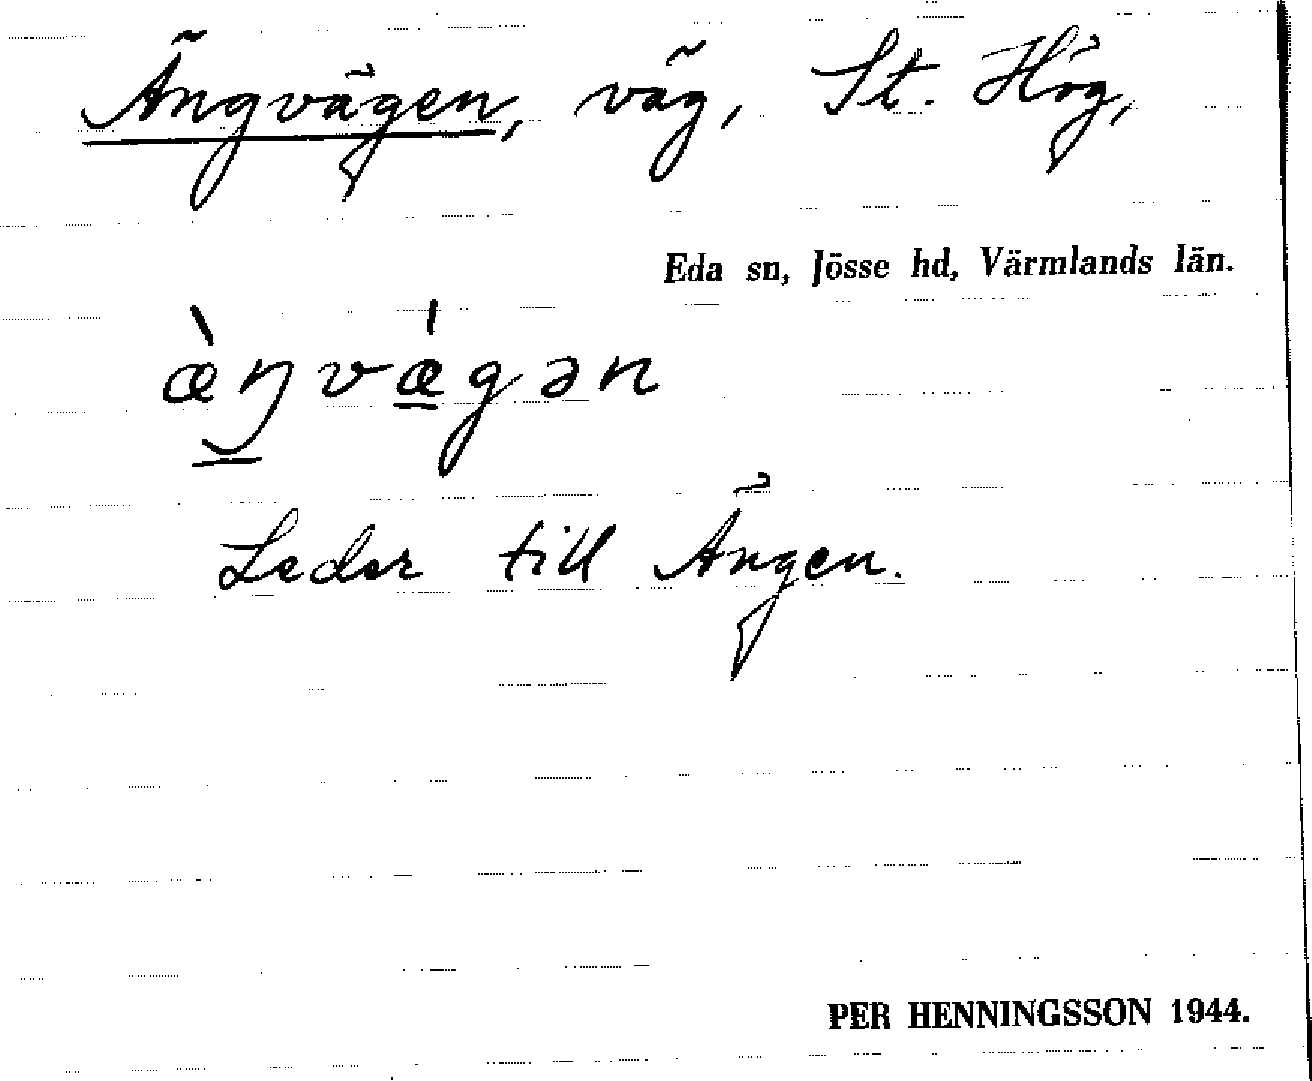 Ängvägen, väg, St. Hög,
Eda sn, Jösse hd, Värmlands län.
æ̀ŋvǽgən
Leder till Ängen.
PER HENNINGSSON 1944.